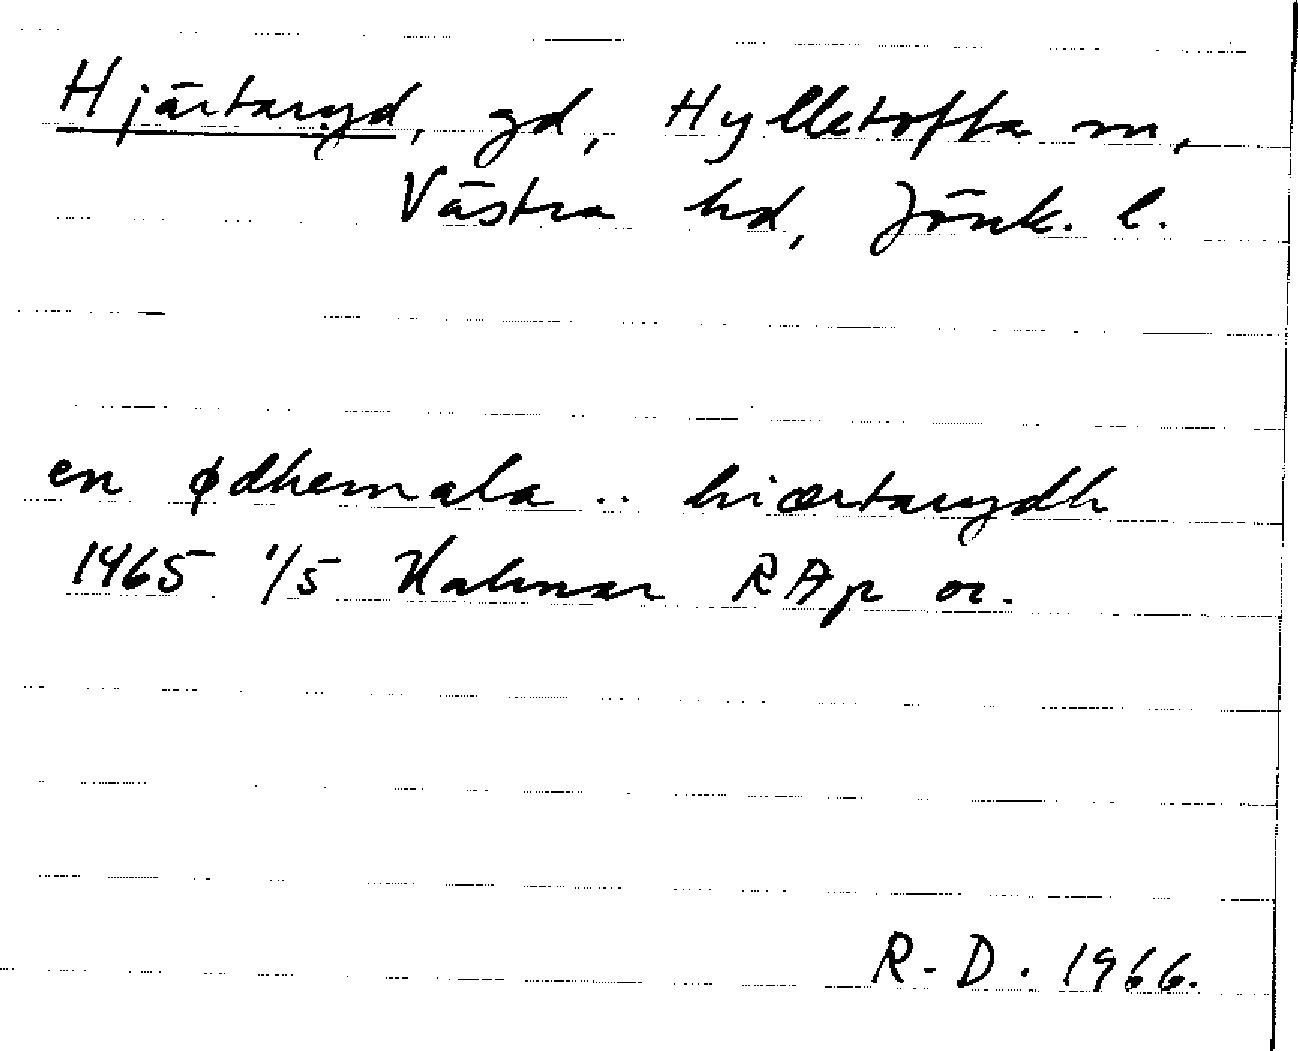 Hjärtaryd, gd, Hylletofta sn,
Västra hd, Jönk. l.
en ødhemala .. hiærtarydh
1465 1/5 Kalmar RAp or.
R-D. 1966.